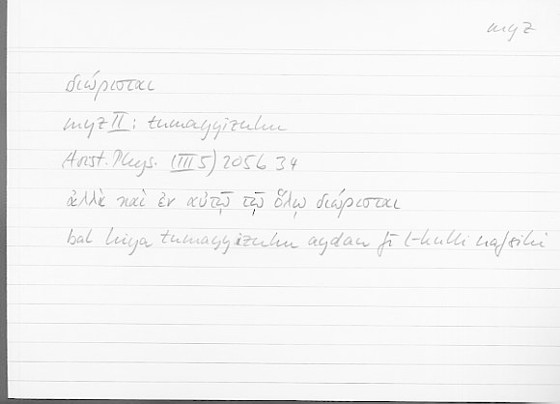 myz
διώρισται
myz II: tumayyizuhu
Arist. Phys. (III 5) 205b 34
ἀλλὰ καὶ ἐν αὐτῷ τῷ ὅλῳ διώρισται
bal hiya tumayyizuhu aydan fī l-kulli nafsihī